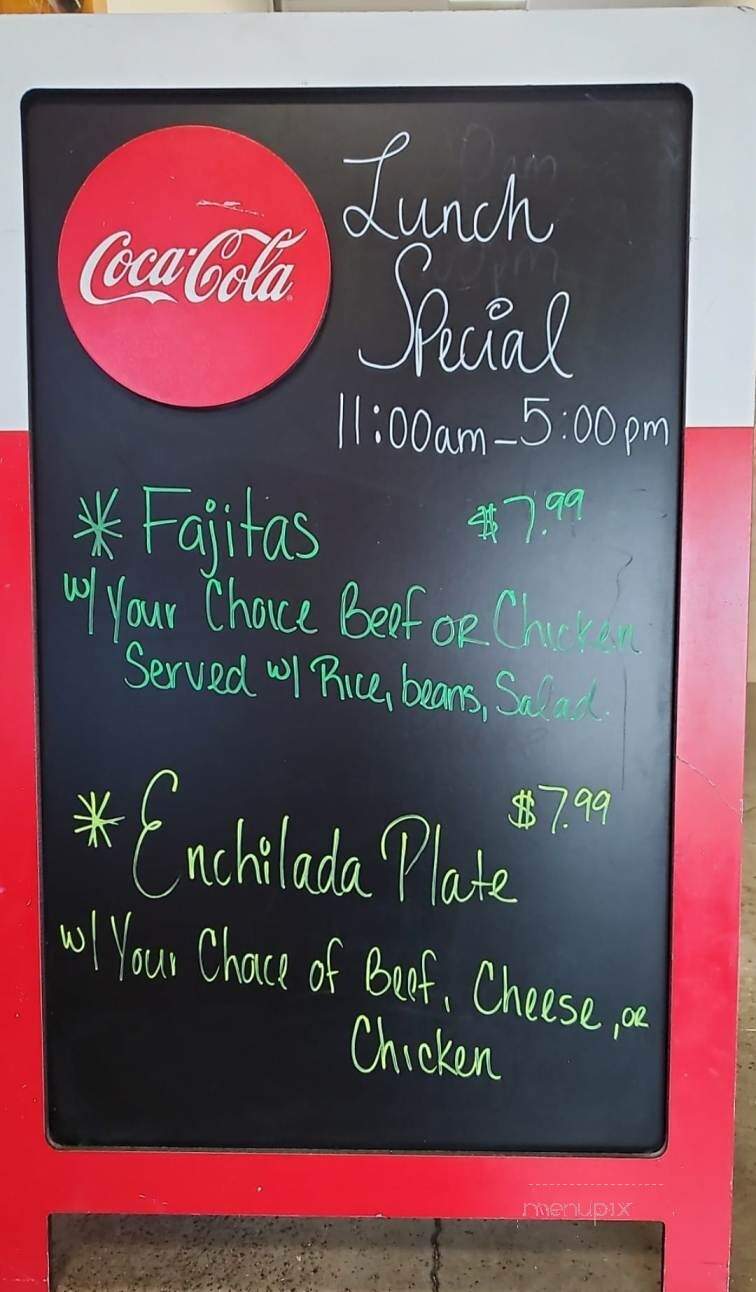 Coca-Cola
Lunch
Special
11:00am - 5:00pm
* Fajitas $7.99
w/ Your Choice Beef or Chicken
Served w/ Rice, beans, Salad.
* Enchilada Plate $7.99
w/ Your Choice of Beef, Cheese, or
Chicken
menupix